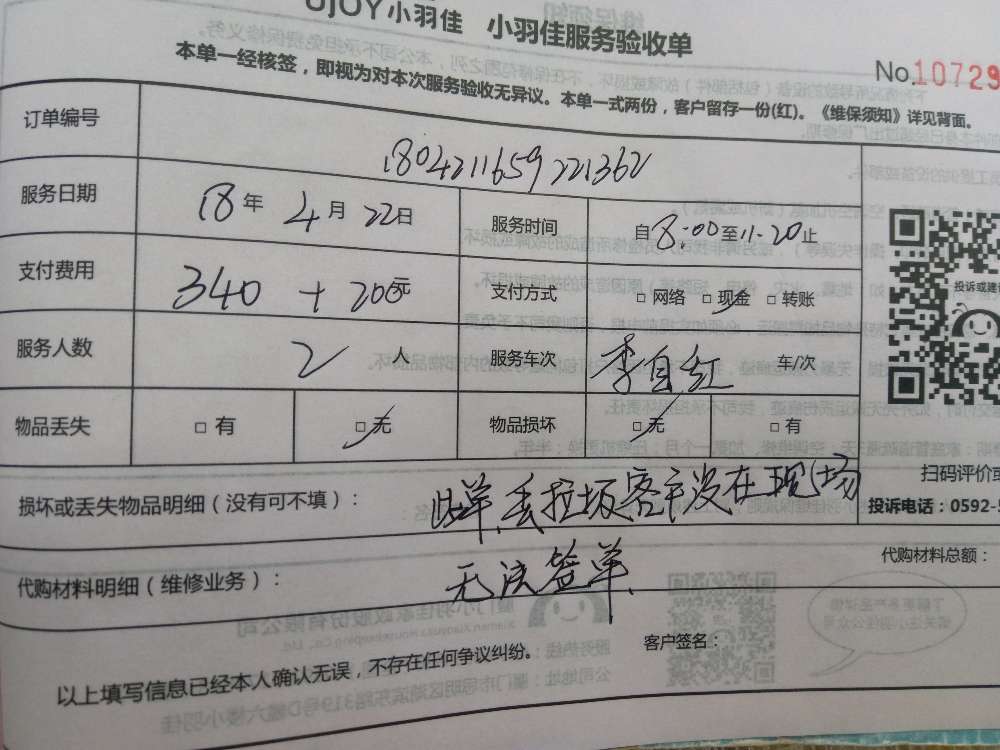 UJOY小羽佳 小羽佳服务验收单
No.10729
本单一经核签，即视为对本次服务验收无异议。本单一式两份，客户留存一份(红)。《维保须知》详见背面。
订单编号 1804211659221362
服务日期 18年 4月 22日 服务时间 自8:00至11.20止
支付费用 340+200元 支付方式 □网络 □现金 □转账
服务人数 2 人 服务车次 李自红 车/次
物品丢失 □有 □无 物品损坏 □无 □有
投诉或建
扫码评价或
投诉电话：0592-5
损坏或丢失物品明细（没有可不填）： 此单丢垃圾客户没在现场
无法签单
代购材料明细（维修业务）： 代购材料总额：
以上填写信息已经本人确认无误，不存在任何争议纠纷。 客户签名：